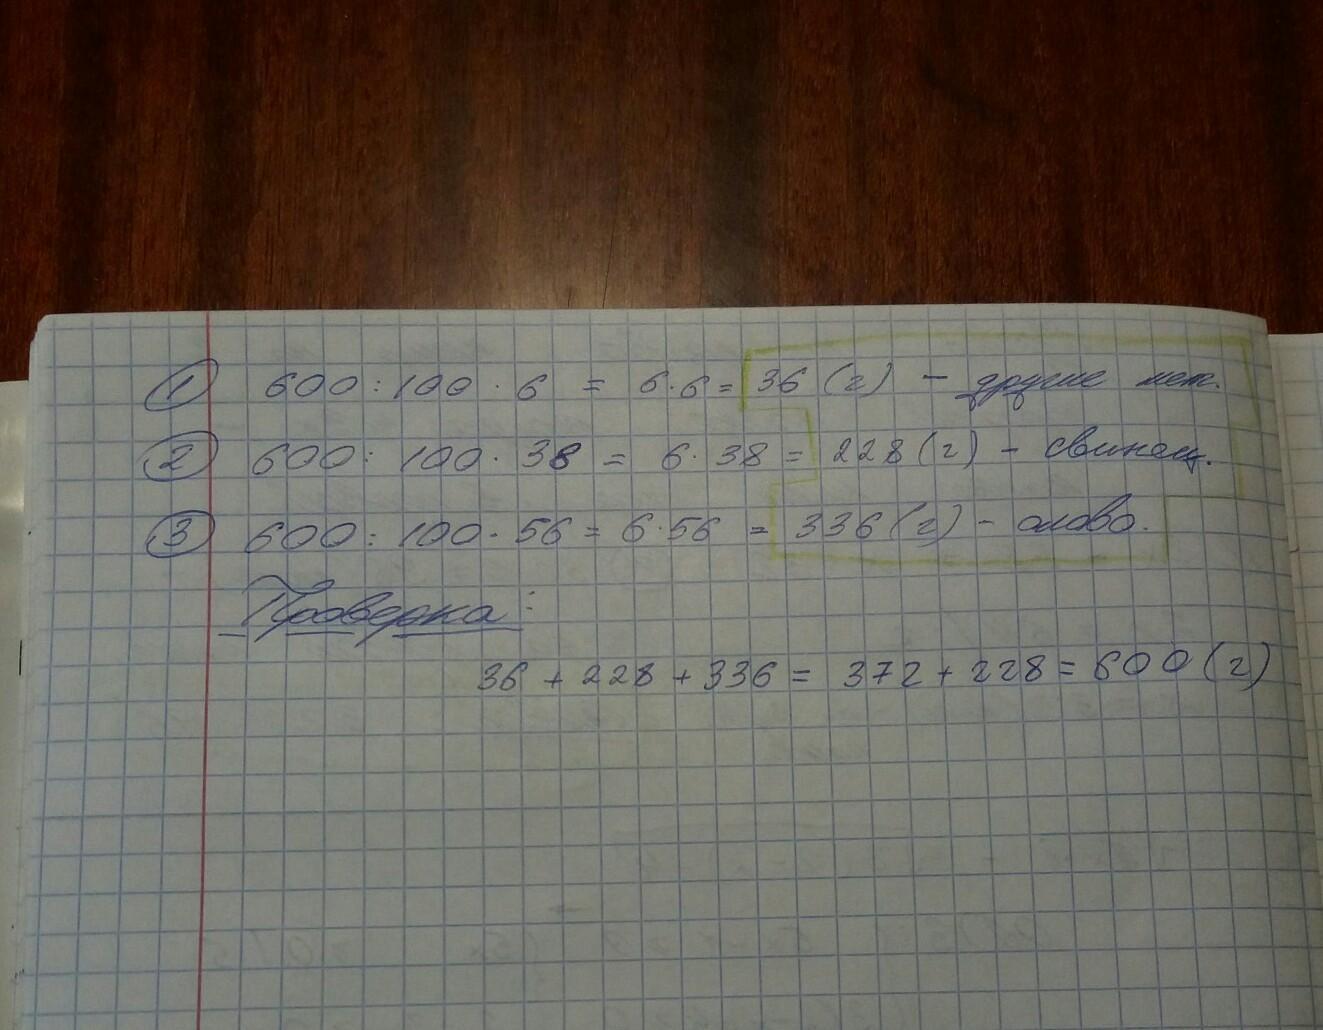 1 600 : 100 · 6 = 6 · 6 = 36 (г) – другие мет.
2 600 : 100 · 38 = 6 · 38 = 228 (г) – свинец.
3 600 : 100 · 56 = 6 · 56 = 336 (г) – олово.
Проверка:
36 + 228 + 336 = 372 + 228 = 600 (г)